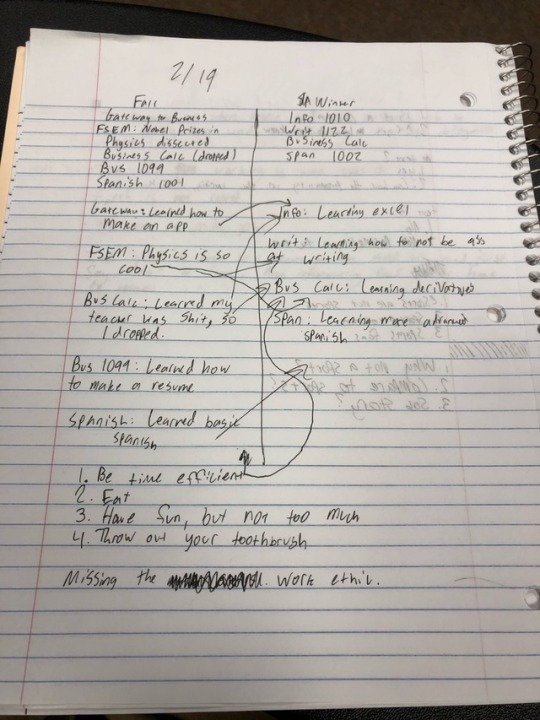 2/19
Fall
Gateway to Business
FSEM: Nobel Prizes in
Physics dissected
Business Calc (dropped)
Bus 1099
Spanish 1001
Gateway: Learned how to
make an app
FSEM: Physics is so
cool
Bus Calc: Learned my
teacher was shit, so
I dropped.
Bus 1099: Learned how
to make a resume
Spanish: Learned basic
spanish
Winter
Info 1010
Writ 1122
Business Calc
Span 1002
Info: Learning excel
Writ: Learning how to not be ass
at writing
Bus Calc: Learning derivatives
Span: Learning more advanced
spanish
1. Be time efficient
2. Eat
3. Have fun, but not too much
4. Throw out your toothbrush
Missing the work ethic.